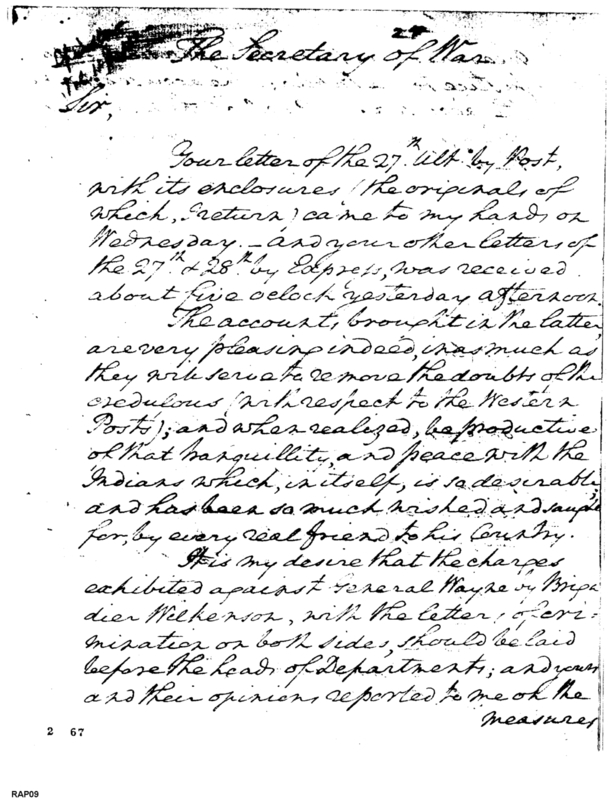 24
The Secretary of War.
Sir,
Your letter of the 27th Ult. by Post,
with its enclosures (the originals of
which, I return) came to my hands on
Wednesday. – and your other letters of
the 27th & 28th by Express, was received
about five oclock yesterday afternoon.
The accounts brought in the latter
are very pleasing indeed, inasmuch as
they will serve to remove the doubts of the
credulous (with respect to the Western
Posts); and when realized, be productive
of that tranquillity, and peace with the
Indians which, in itself, is so desirable,
and has been so much wished and sought
for, by every real friend to his Country.
It is my desire that the charges
exhibited against General Wayne by Briga
dier Wilkenson, with the letters of cri-
mination on both sides, should be laid
before the heads of Departments; and yours
and their opinions reported to me on the
measures
2 67
RAP09